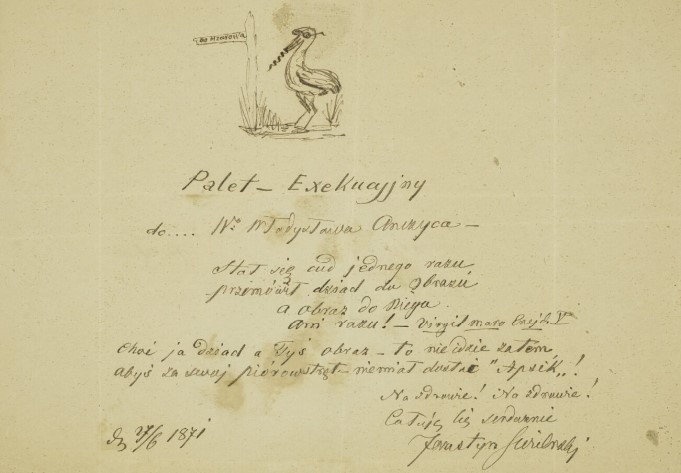 do Mzurowa
Palet – Exekucyjny
do.... Wo Władysława Anczyca –
Stał się cud jednego razu
przemówił dziad do Obrazu
a obraz do Niego
Ani razu! – Virgil Maro
Choć ja dziad a Tyś obraz – to nie idzie zatem
abyś za swój piórowstręt – niemiał dostać "Apsik„!
Na zdrowie! Na zdrowie!
Całuję Cię serdecznie
1871